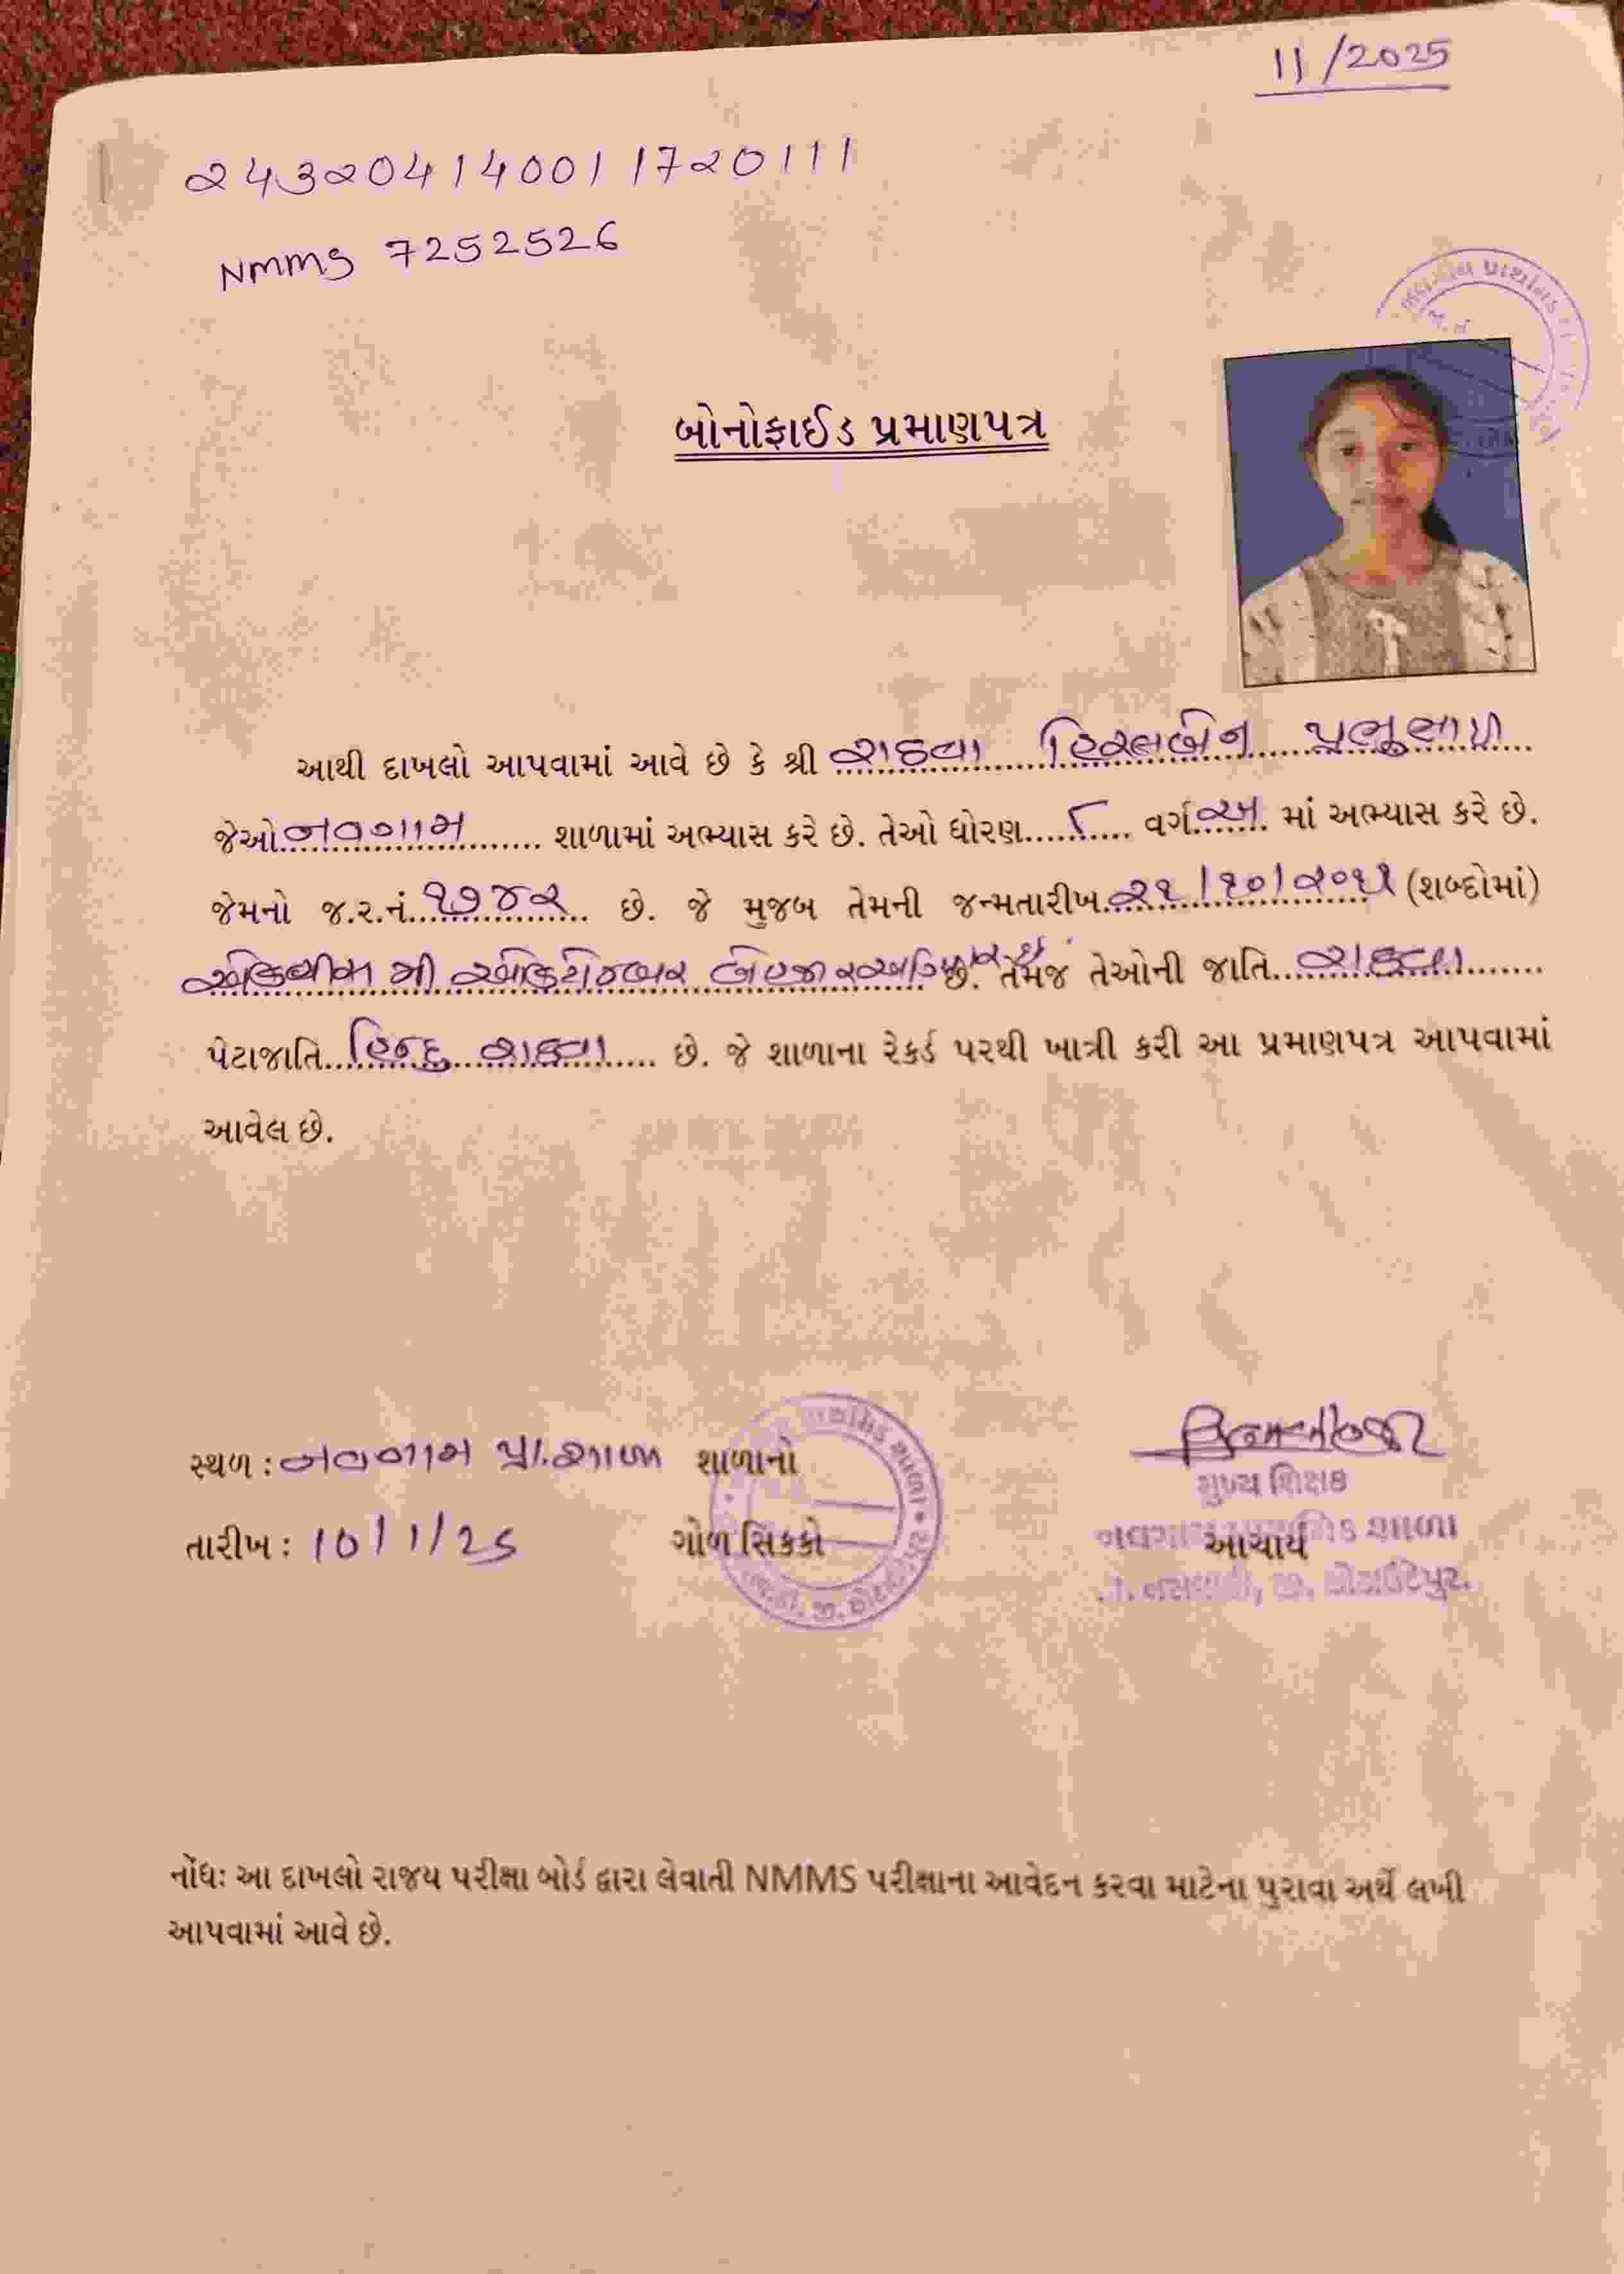 11/2025
243204140011720111
NMMS 7252526
બોનોફાઈડ પ્રમાણપત્ર
આથી દાખલો આપવામાં આવે છે કે શ્રી રાઠવા
જેઓ નવાગામ શાળામાં અભ્યાસ કરે છે. તેઓ ધોરણ ૮ વર્ગ અ માં અભ્યાસ કરે છે.
જેમનો જ.ર.નં. ૧૭૪૨ છે. જે મુજબ તેમની જન્મતારીખ ૨૧/૧૦/૨૦૧૧ (શબ્દોમાં)
છે. તેમજ તેઓની જાતિ રાઠવા
પેટાજાતિ હિન્દુ રાઠવા છે. જે શાળાના રેકર્ડ પરથી ખાત્રી કરી આ પ્રમાણપત્ર આપવામાં
આવેલ છે.
સ્થળ : નવાગામ પ્રા.શાળા શાળાનો
તારીખ : 10/1/25 ગોળ સિક્કો
મુખ્ય શિક્ષક
શાળા
આચાર્ય
નોંધઃ આ દાખલો રાજય પરીક્ષા બોર્ડ દ્વારા લેવાતી NMMS પરીક્ષાના આવેદન કરવા માટેના પુરાવા અર્થે લખી
આપવામાં આવે છે.